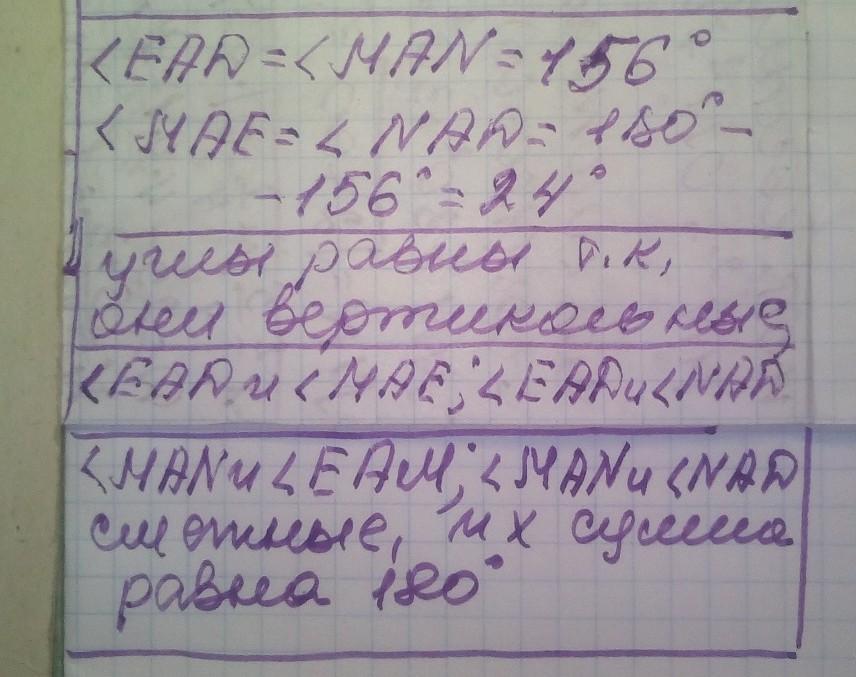 <EAD = <MAN = 156°
<MAE = < NAD = 180° -
- 156° = 24°
углы равны т.к,
они вертикольные
<EAD и <MAE; <EAD и <NAD
<MAN и <EAM; <MAN и <NAD
смежные, их сумма
равна 180°